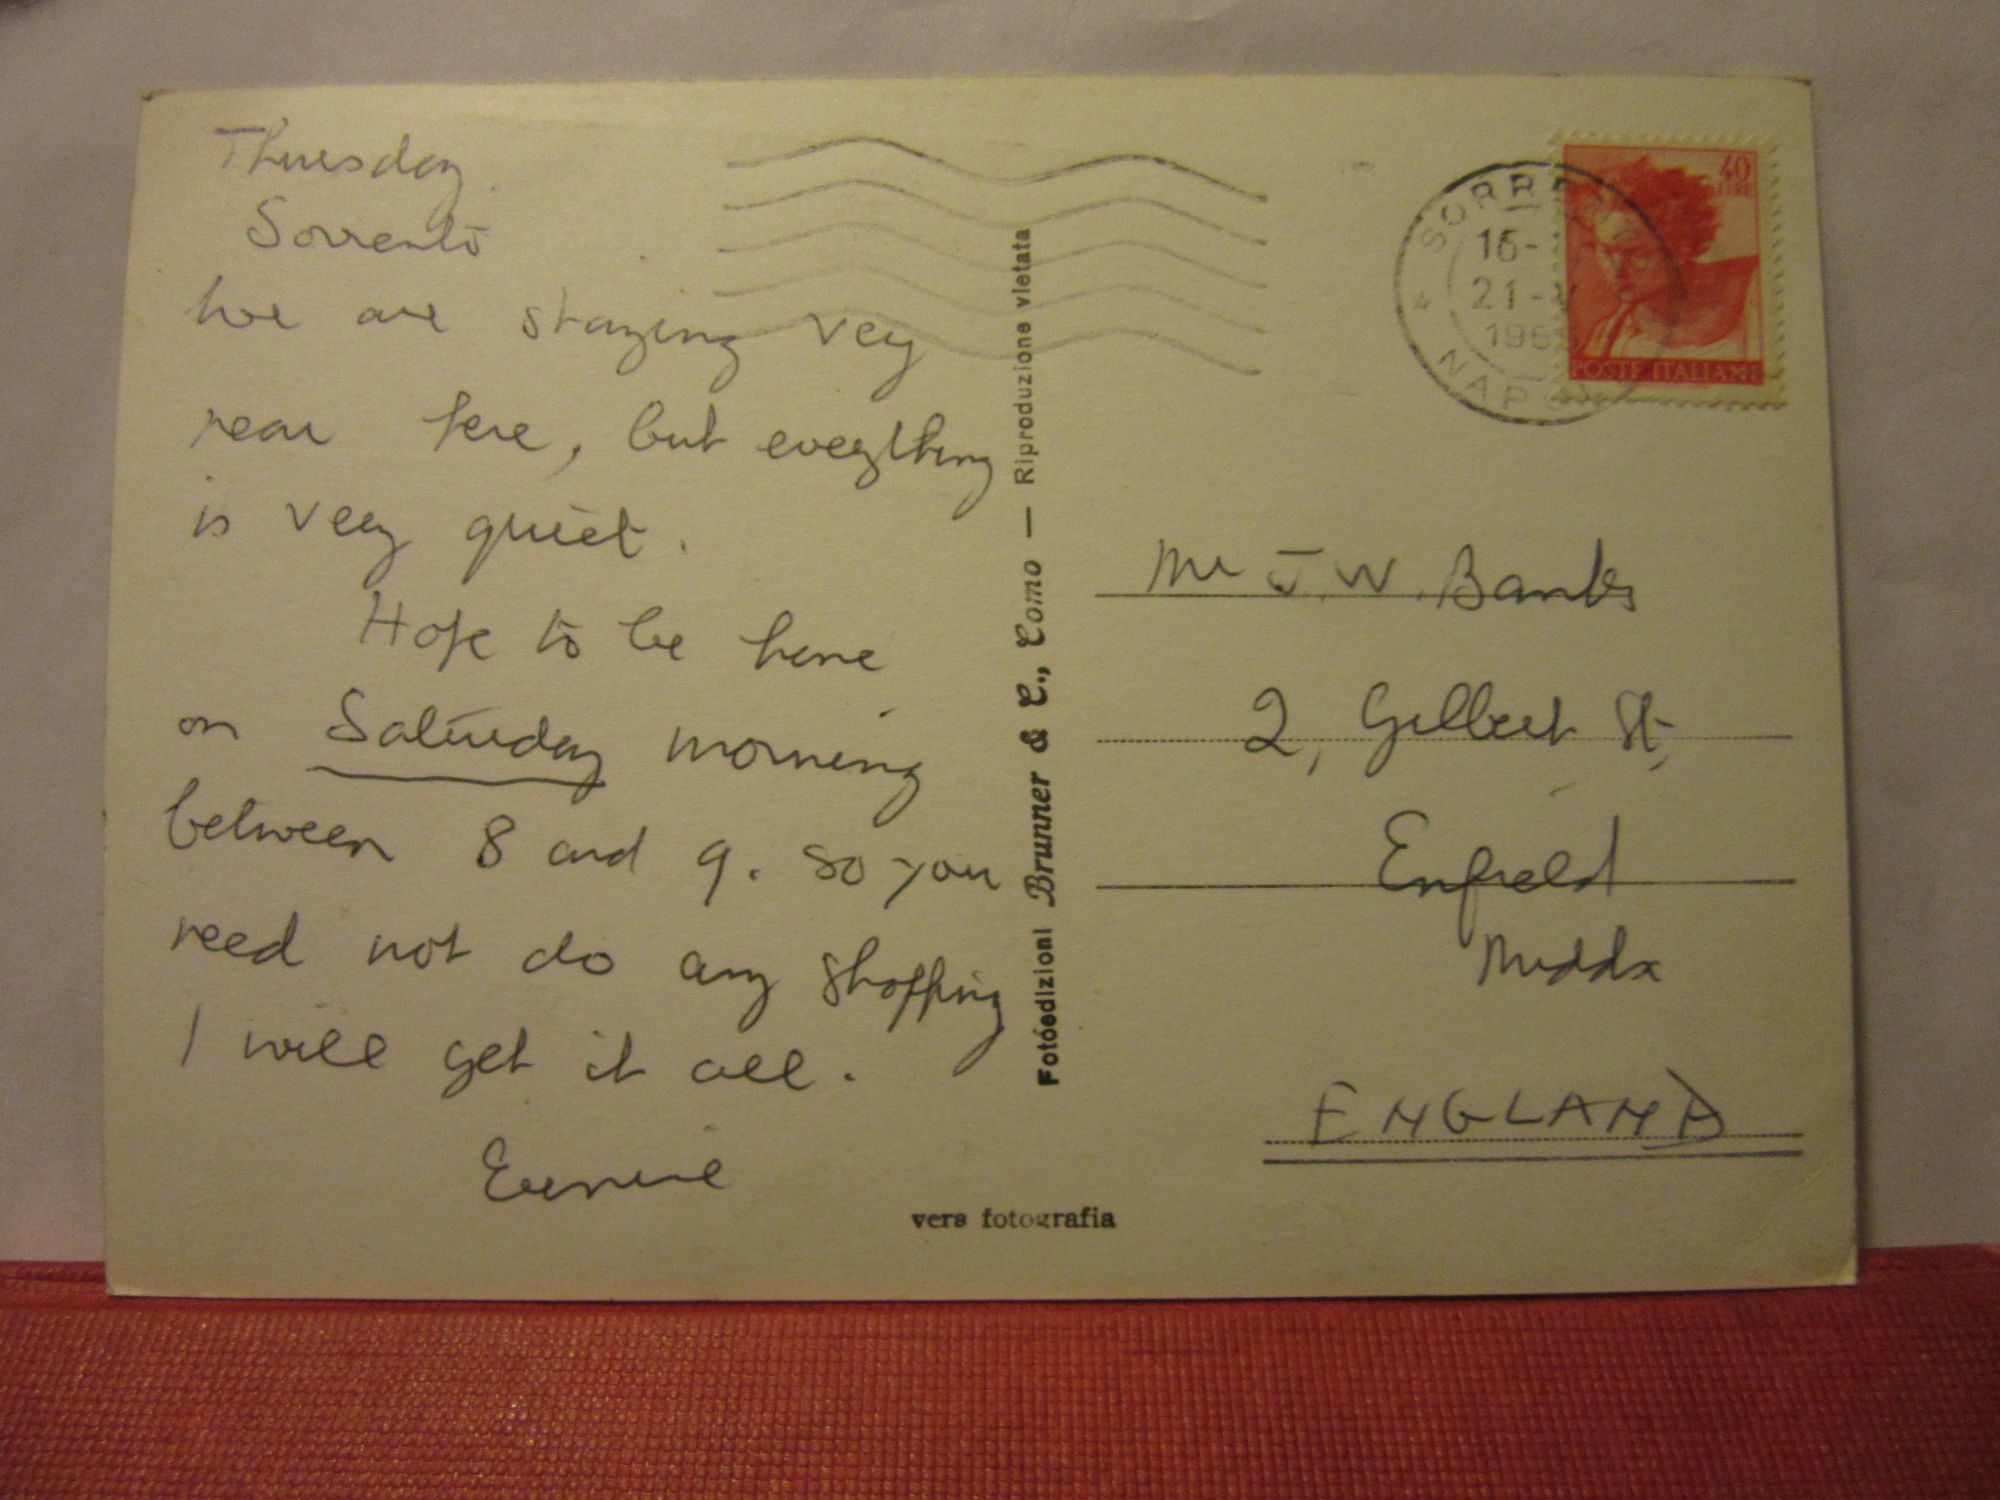 Thursday
Sorrento
We are staying very
near here, but everything
is very quiet.
Hope to be home
on Saturday morning
between 8 and 9. so you
need not do any shopping
I will get it all.
Fotoedizioni Brunner & C., Como — Riproduzione vietata
vera fotografia
40
LIRE
POSTE ITALIANE
SORRENTO
21-
NAPOLI
Mr J.W. Banks
2, Gilbert St,
Enfield
Middx
ENGLAND